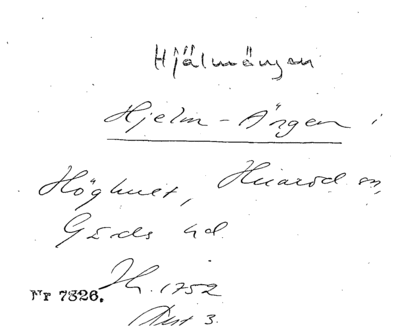 Hjälmängen
Hjelm-Ängen i
Höghult, Huaröd sn,
Gärds hd.
Lh. 1752
Nr 7326.
Akt 3.